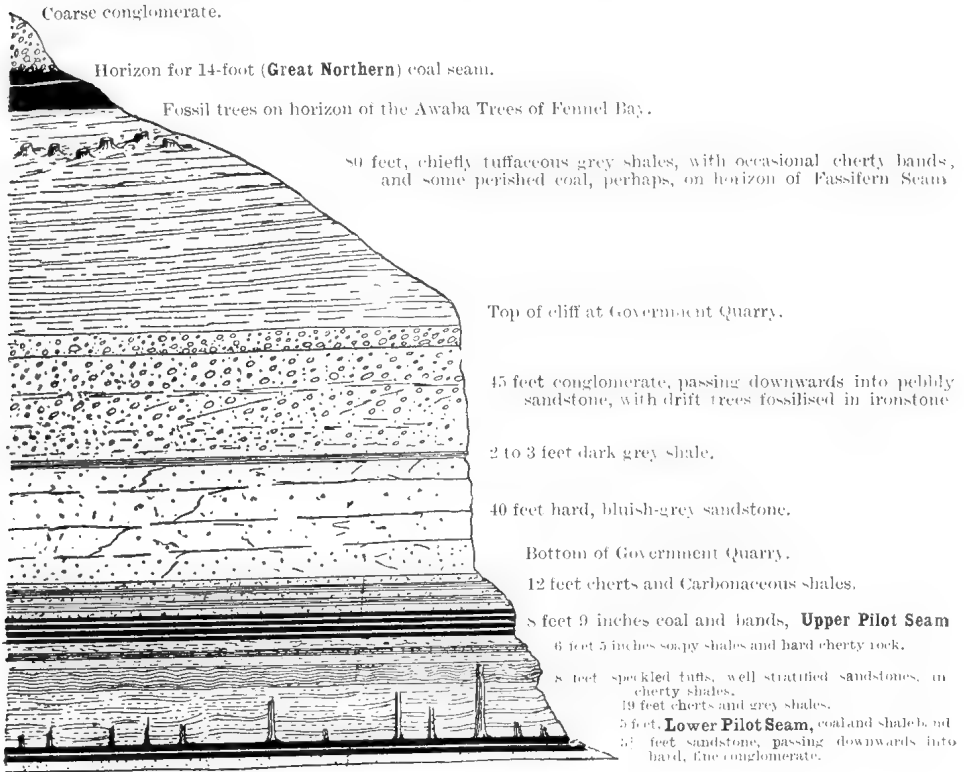 Coarse conglomerate.
Horizon for 14-foot (Great Northern) coal seam.
Fossil trees on horizon of the Awaba Trees of Fennel Bay.
80 feet, chiefly tuffaceous grey shales, with occasional cherty bands,
and some perished coal, perhaps, on horizon of Fassifern Seam
Top of cliff at Government Quarry.
45 feet conglomerate, passing downwards into pebbly
sandstone, with drift trees fossilised in ironstone
2 to 3 feet dark grey shale.
40 feet hard, bluish-grey sandstone.
Bottom of Government Quarry.
12 feet cherts and Carbonaceous shales.
8 feet 9 inches coal and bands, Upper Pilot Seam
6 feet 5 inches soapy shales and hard cherty rock.
8 feet speckled tuffs, well stratified sandstones,
cherty shales.
19 feet cherts and grey shales.
5 feet, Lower Pilot Seam, coal and shale
feet sandstone, passing downwards into
hard, fine conglomerate.